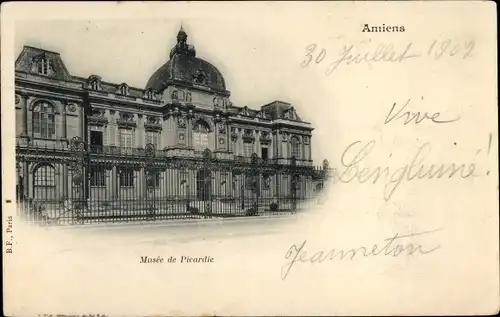 Amiens
30 Juillet 1902
Vive
Jeanneton
Musée de Picardie
B.F., Paris